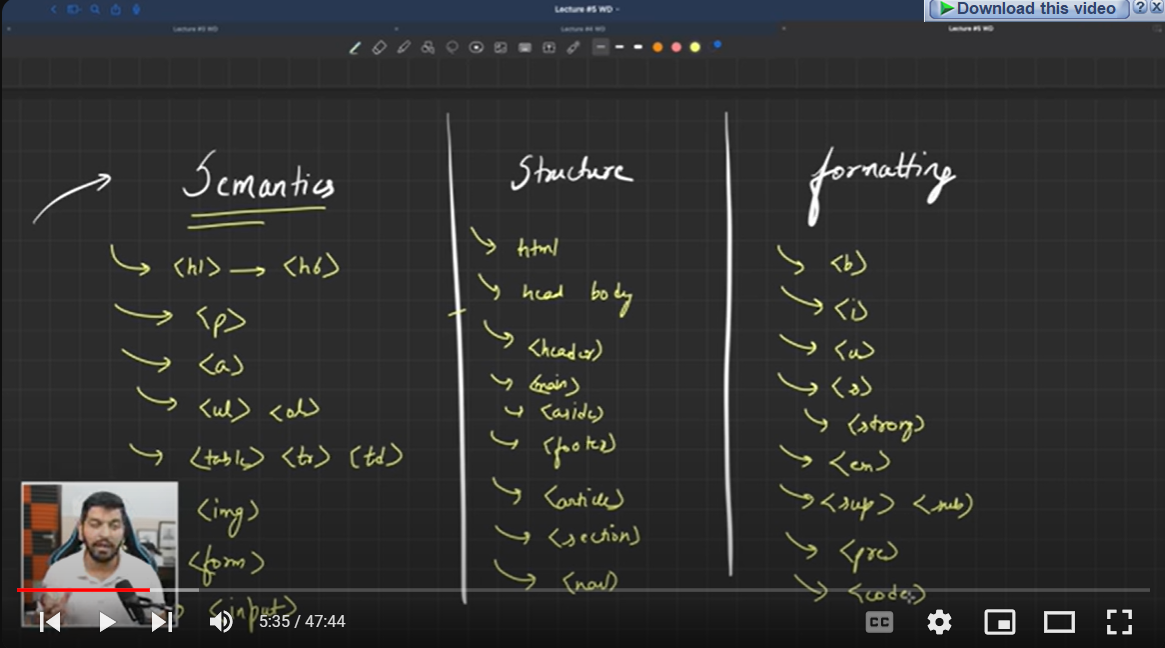 Lecture #5 WD
Download this video
?
X
Lecture #3 WD
Lecture #4 WD
Lecture #5 WD
Semantics
<h1> → <h6>
<p>
<a>
<ul> <ol>
<table> <tr> <td>
<img>
<form>
<input>
Structure
html
head body
<header>
<main>
<aside>
<footer>
<article>
<section>
<nav>
formatting
<b>
<i>
<u>
<s>
<strong>
<em>
<sup> <sub>
<pre>
<code>
5:35 / 47:44
CC